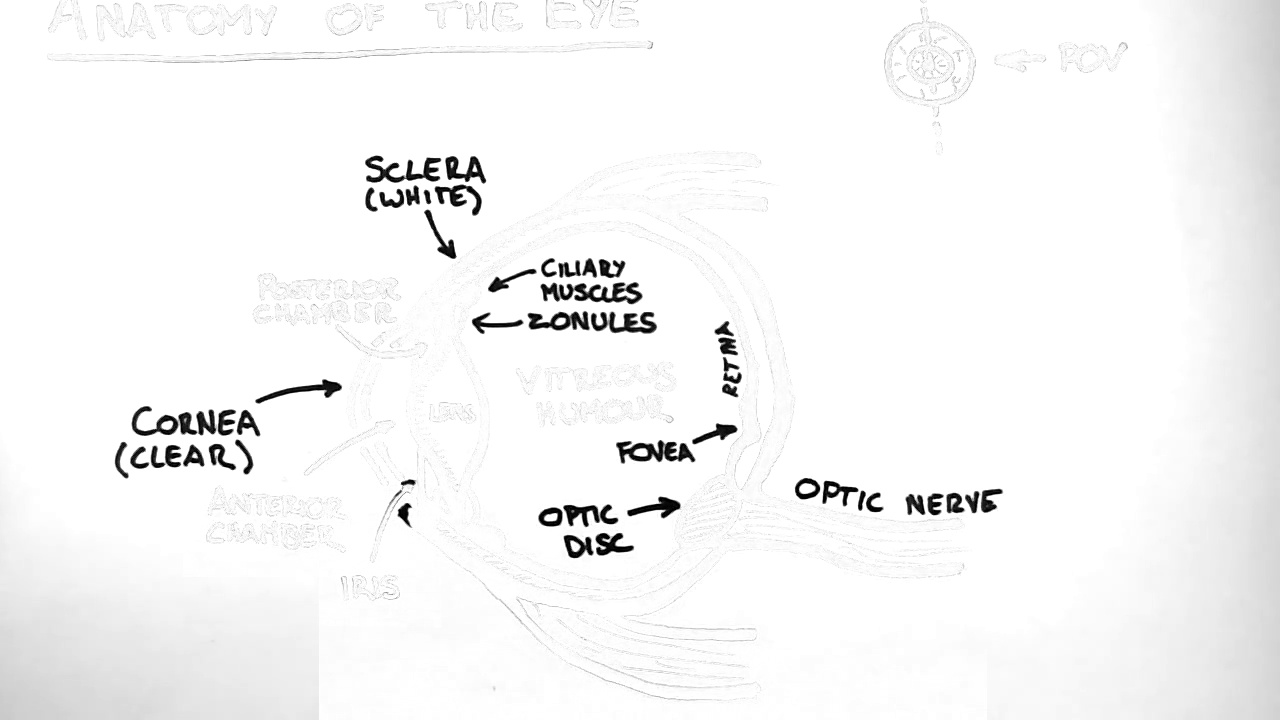 ANATOMY OF THE EYE
POV
SCLERA
(WHITE)
CILIARY
MUSCLES
ZONULES
POSTERIOR
CHAMBER
RETINA
VITREOUS
HUMOUR
LENS
CORNEA
(CLEAR)
FOVEA
ANTERIOR
CHAMBER
OPTIC
DISC
OPTIC NERVE
IRIS